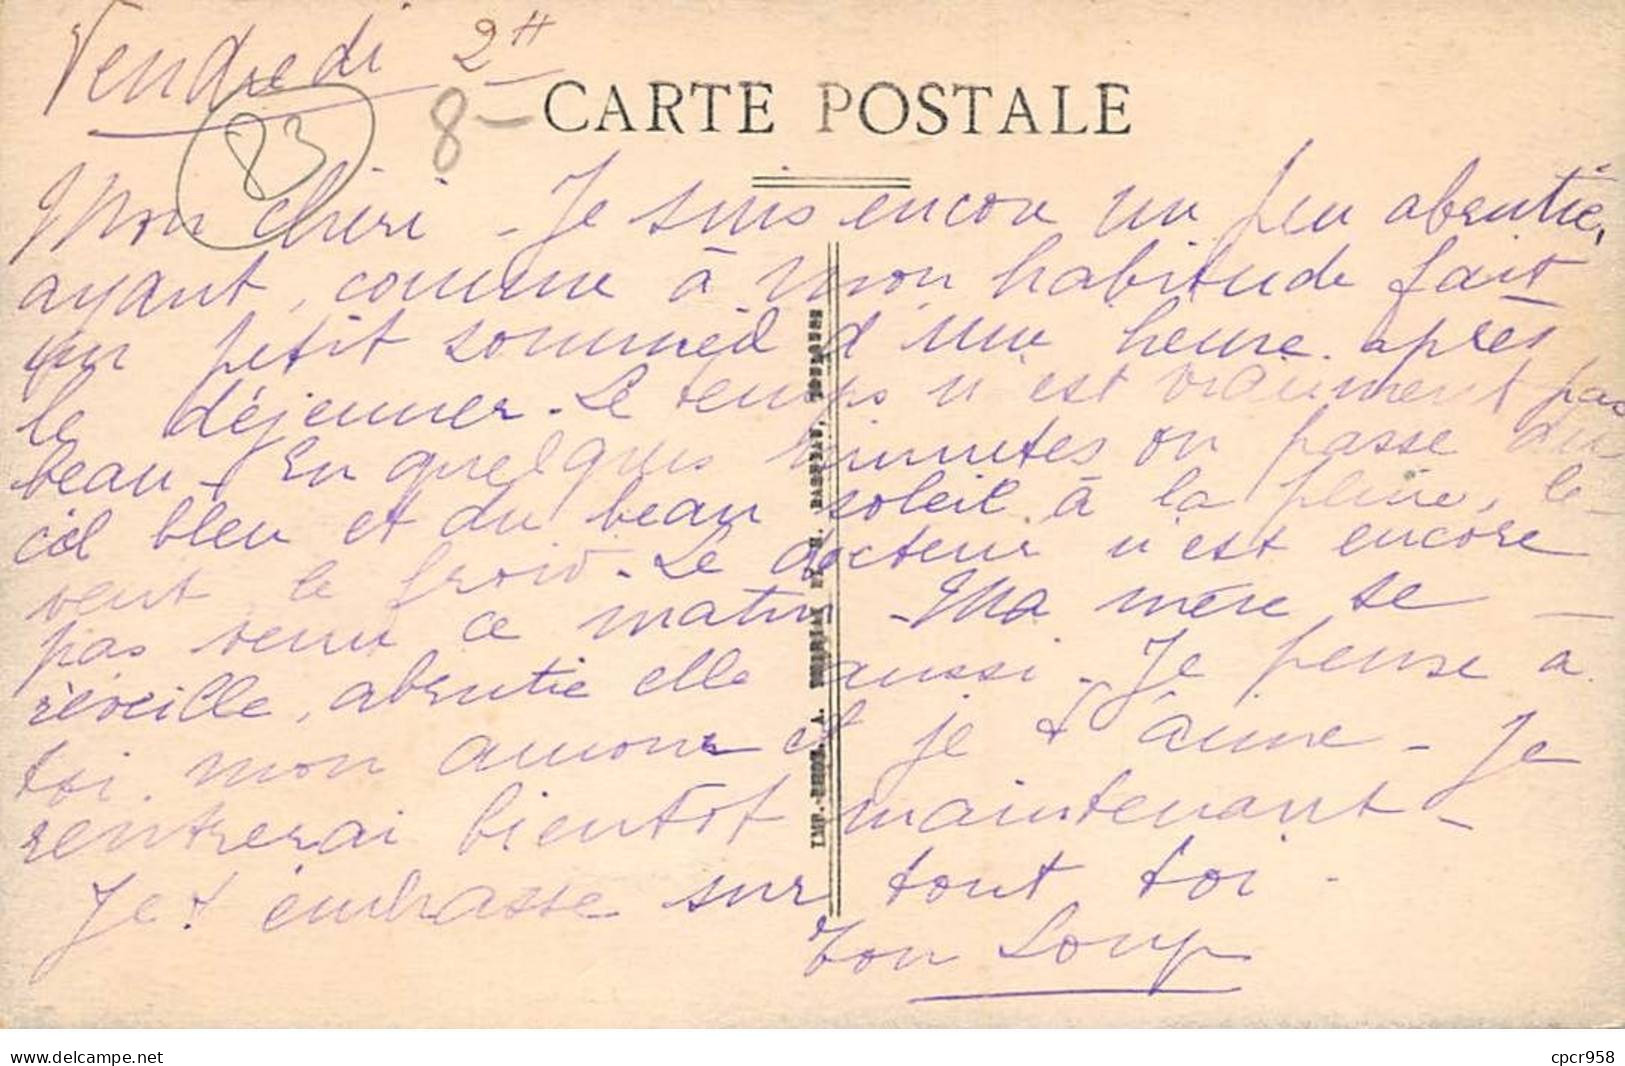 Vendredi 2H
83
8-
CARTE POSTALE
Mon chéri - Je suis encore un peu abrutie,
ayant, comme à mon habitude fait
un petit sommeil d'une heure après
le déjeuner. Le temps n'est vraiment pas
beau. En quelques minutes on passe du
ciel bleu et du beau soleil à la pluie, le
vent, le froid. Le docteur n'est encore
pas venu ce matin - Ma mère se
réveille, abrutie elle aussi. Je pense à
toi, mon amour et je t'aime - Je
rentrerai bientôt maintenant -
Je t'embrasse sur tout toi -
Ton Loup
delcampe.net
cpcr958